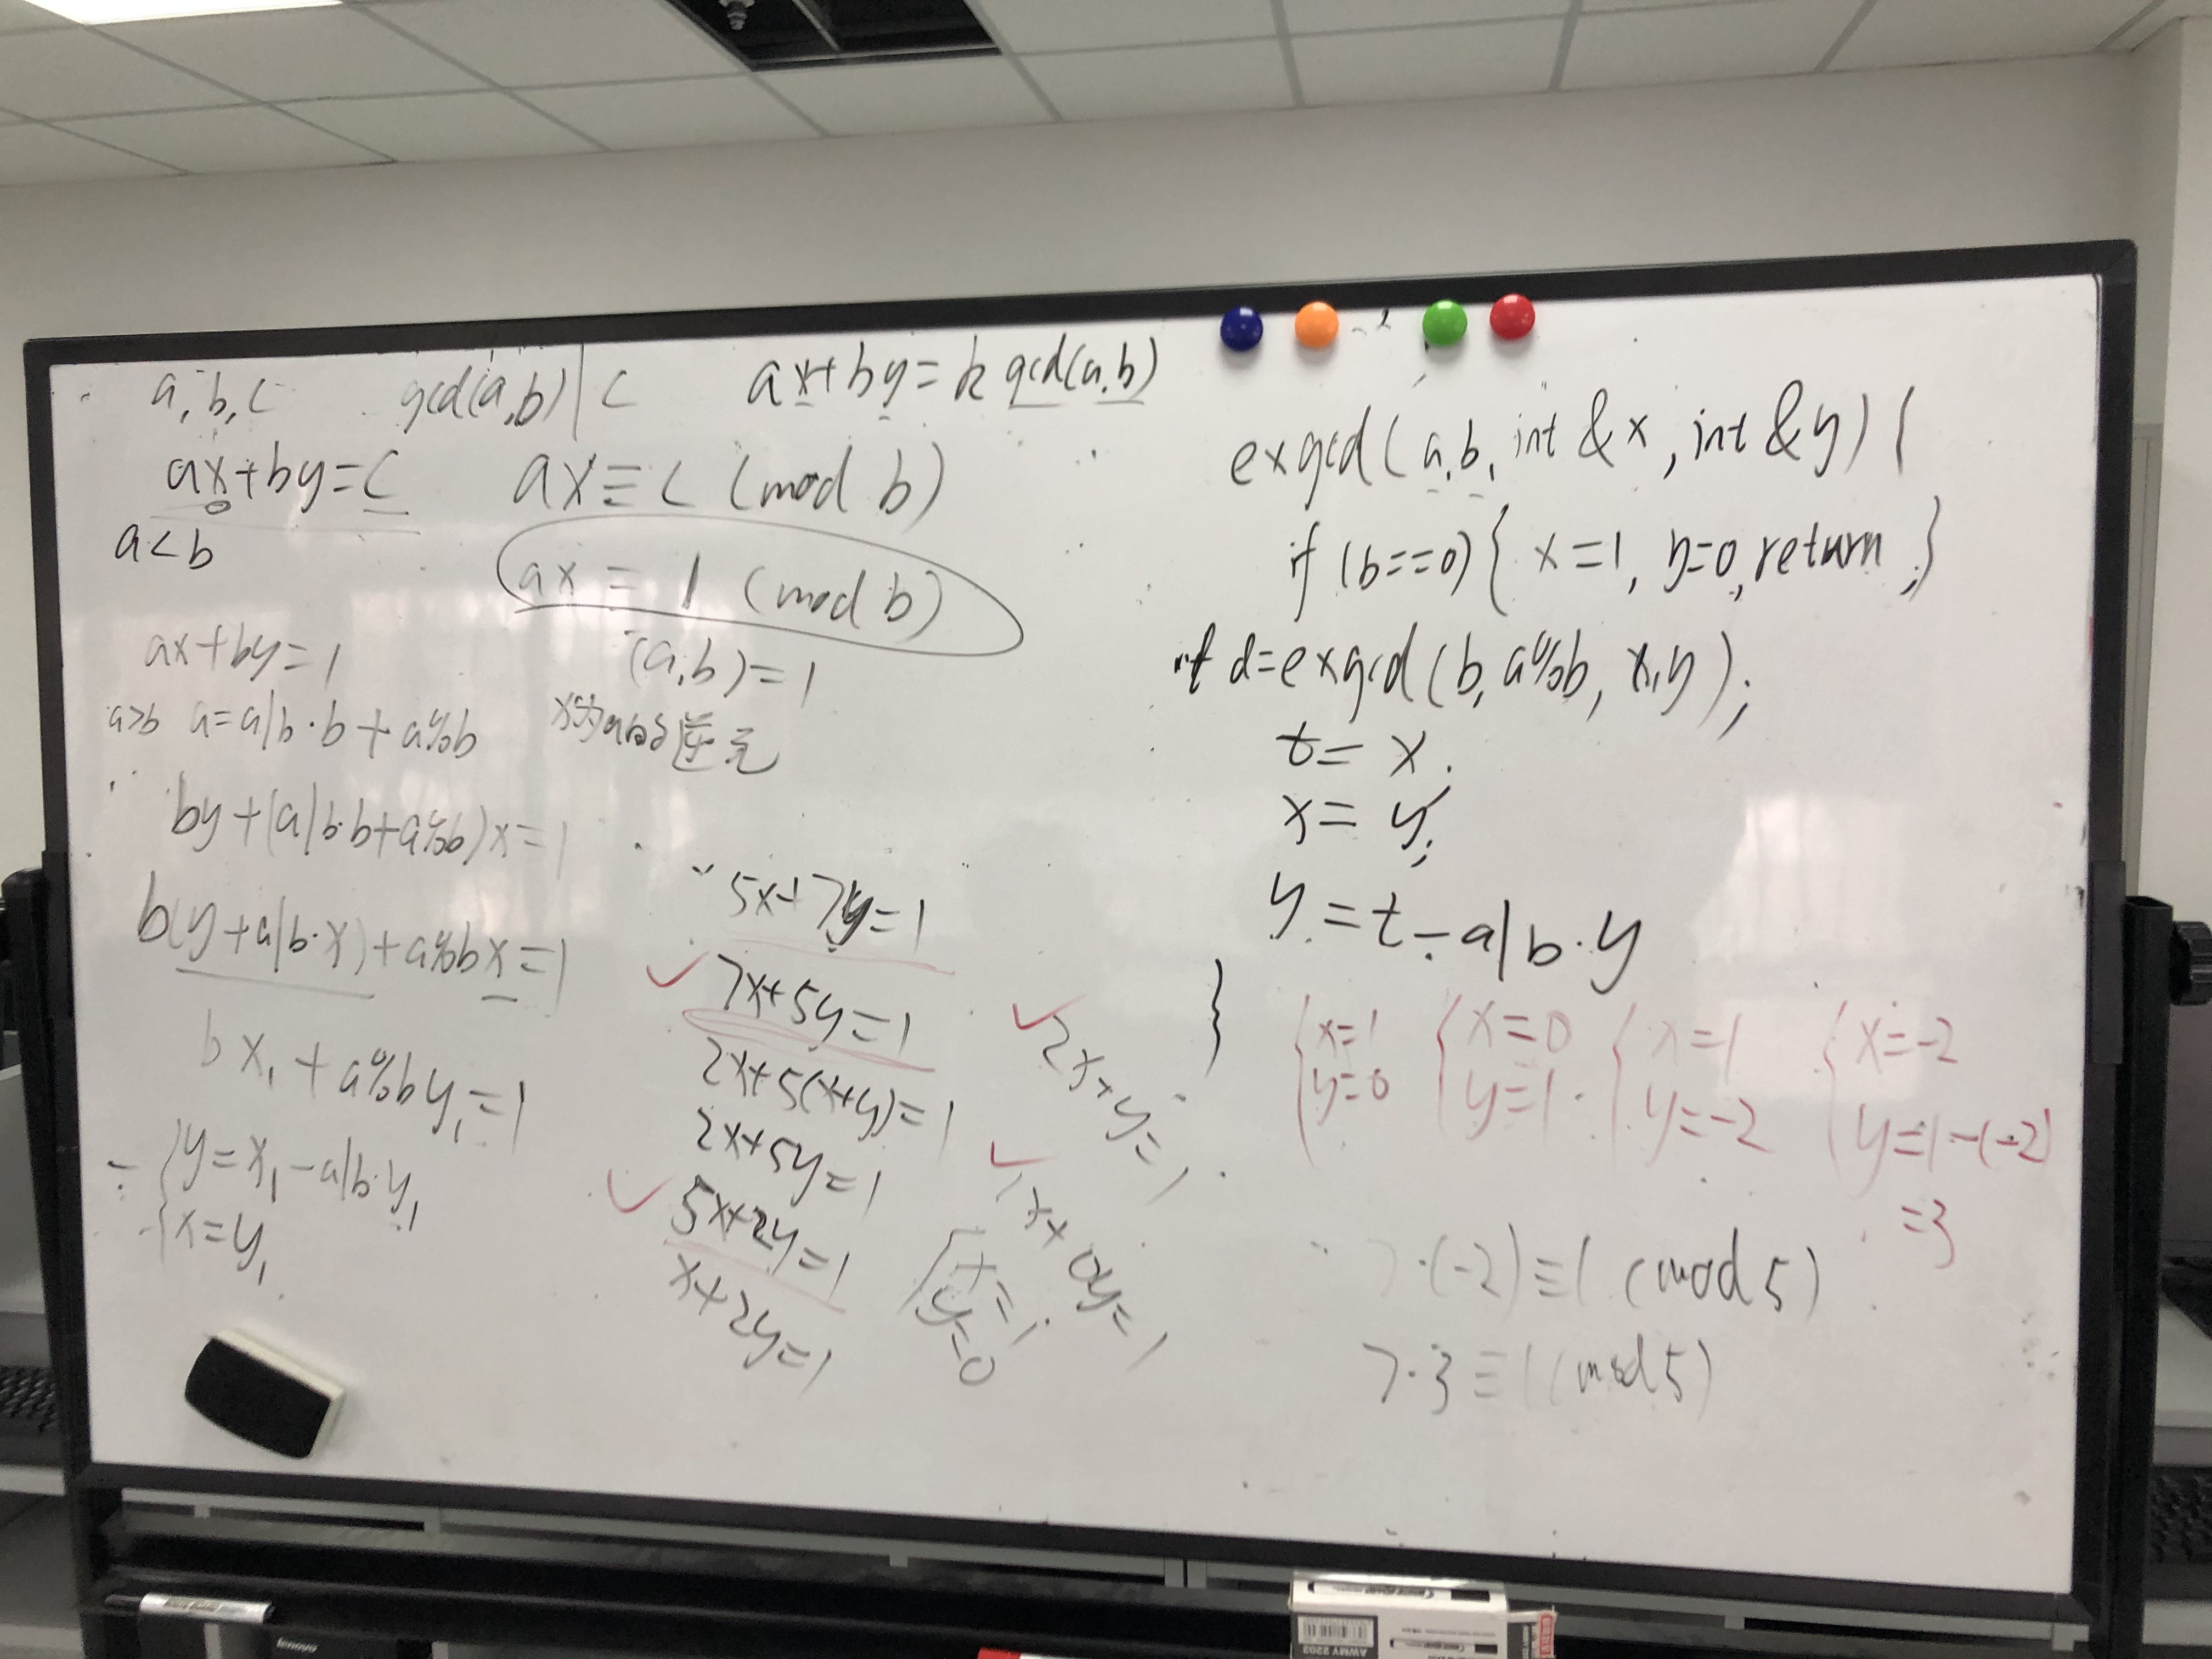 a, b, c    gcd(a,b) | c    ax+by=k gcd(a,b)
ax+by=c    ax≡c (mod b)
a<b    ax≡1 (mod b)
ax+by=1    (a,b)=1
a>b  a=a/b·b+a%b    x为a的逆元
by+(a/b·b+a%b)x=1
b(y+a/b·x)+a%bx=1
bx₁+a%by₁=1
y=x₁-a/b·y₁
x=y₁
5x+7y=1
7x+5y=1
2x+5(x+y)=1
2x+5y=1
5x+2y=1
x+2y=1
2x+y=1
1x+0y=1
x=1
y=0
exgcd(a,b, int &x, int &y){
if (b==0){ x=1, y=0, return ;}
int d=exgcd(b, a%b, x,y);
t=x;
x=y;
y=t-a/b·y
}
x=1    x=0    x=1    x=-2
y=0    y=1    y=-2    y=1-(-2)
=3
7·(-2)≡1 (mod 5)
7·3≡1 (mod 5)
lenovo
AWMY 2202